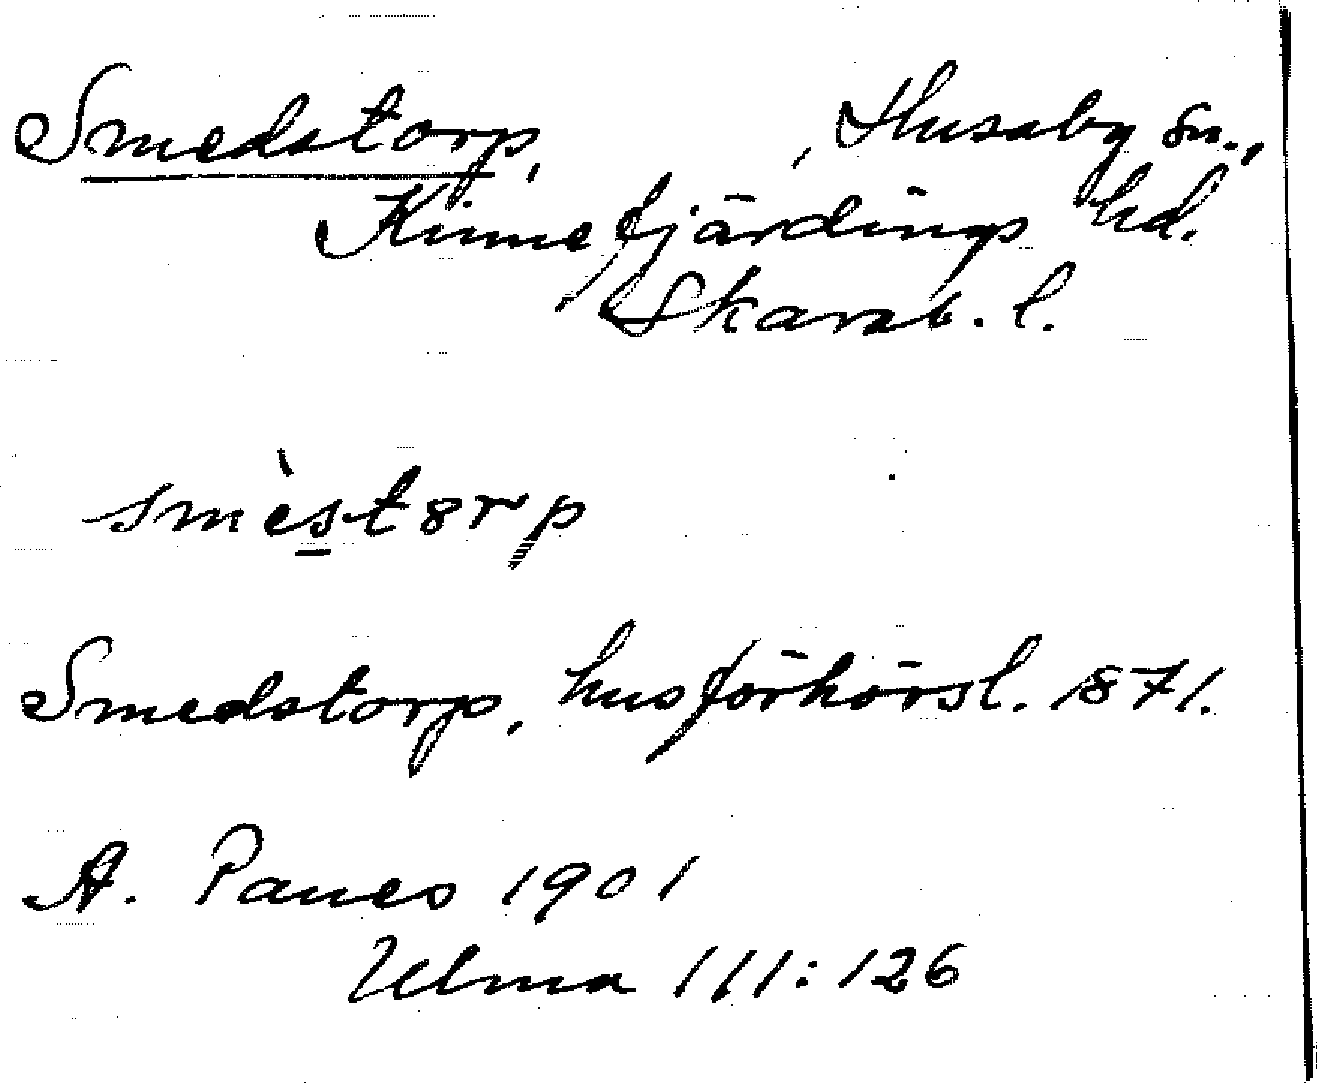 Smedstorp, , Husaby sn.,
Kinnefjärdings hd.
Skarab. l.
smèstorp
Smedstorp, husförhörsl. 1871.
A. Paues 1901
Ulma 111:126